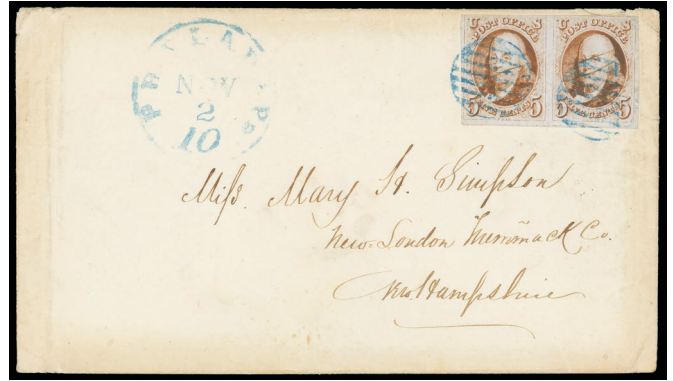 PHILADA. Pa.
NOV
2
10
U S
POST OFFICE
5 FIVE CENTS 5
U S
POST OFFICE
5 FIVE CENTS 5
Miss. Mary H. Simpson
New-London Merrimack Co.
New Hampshire